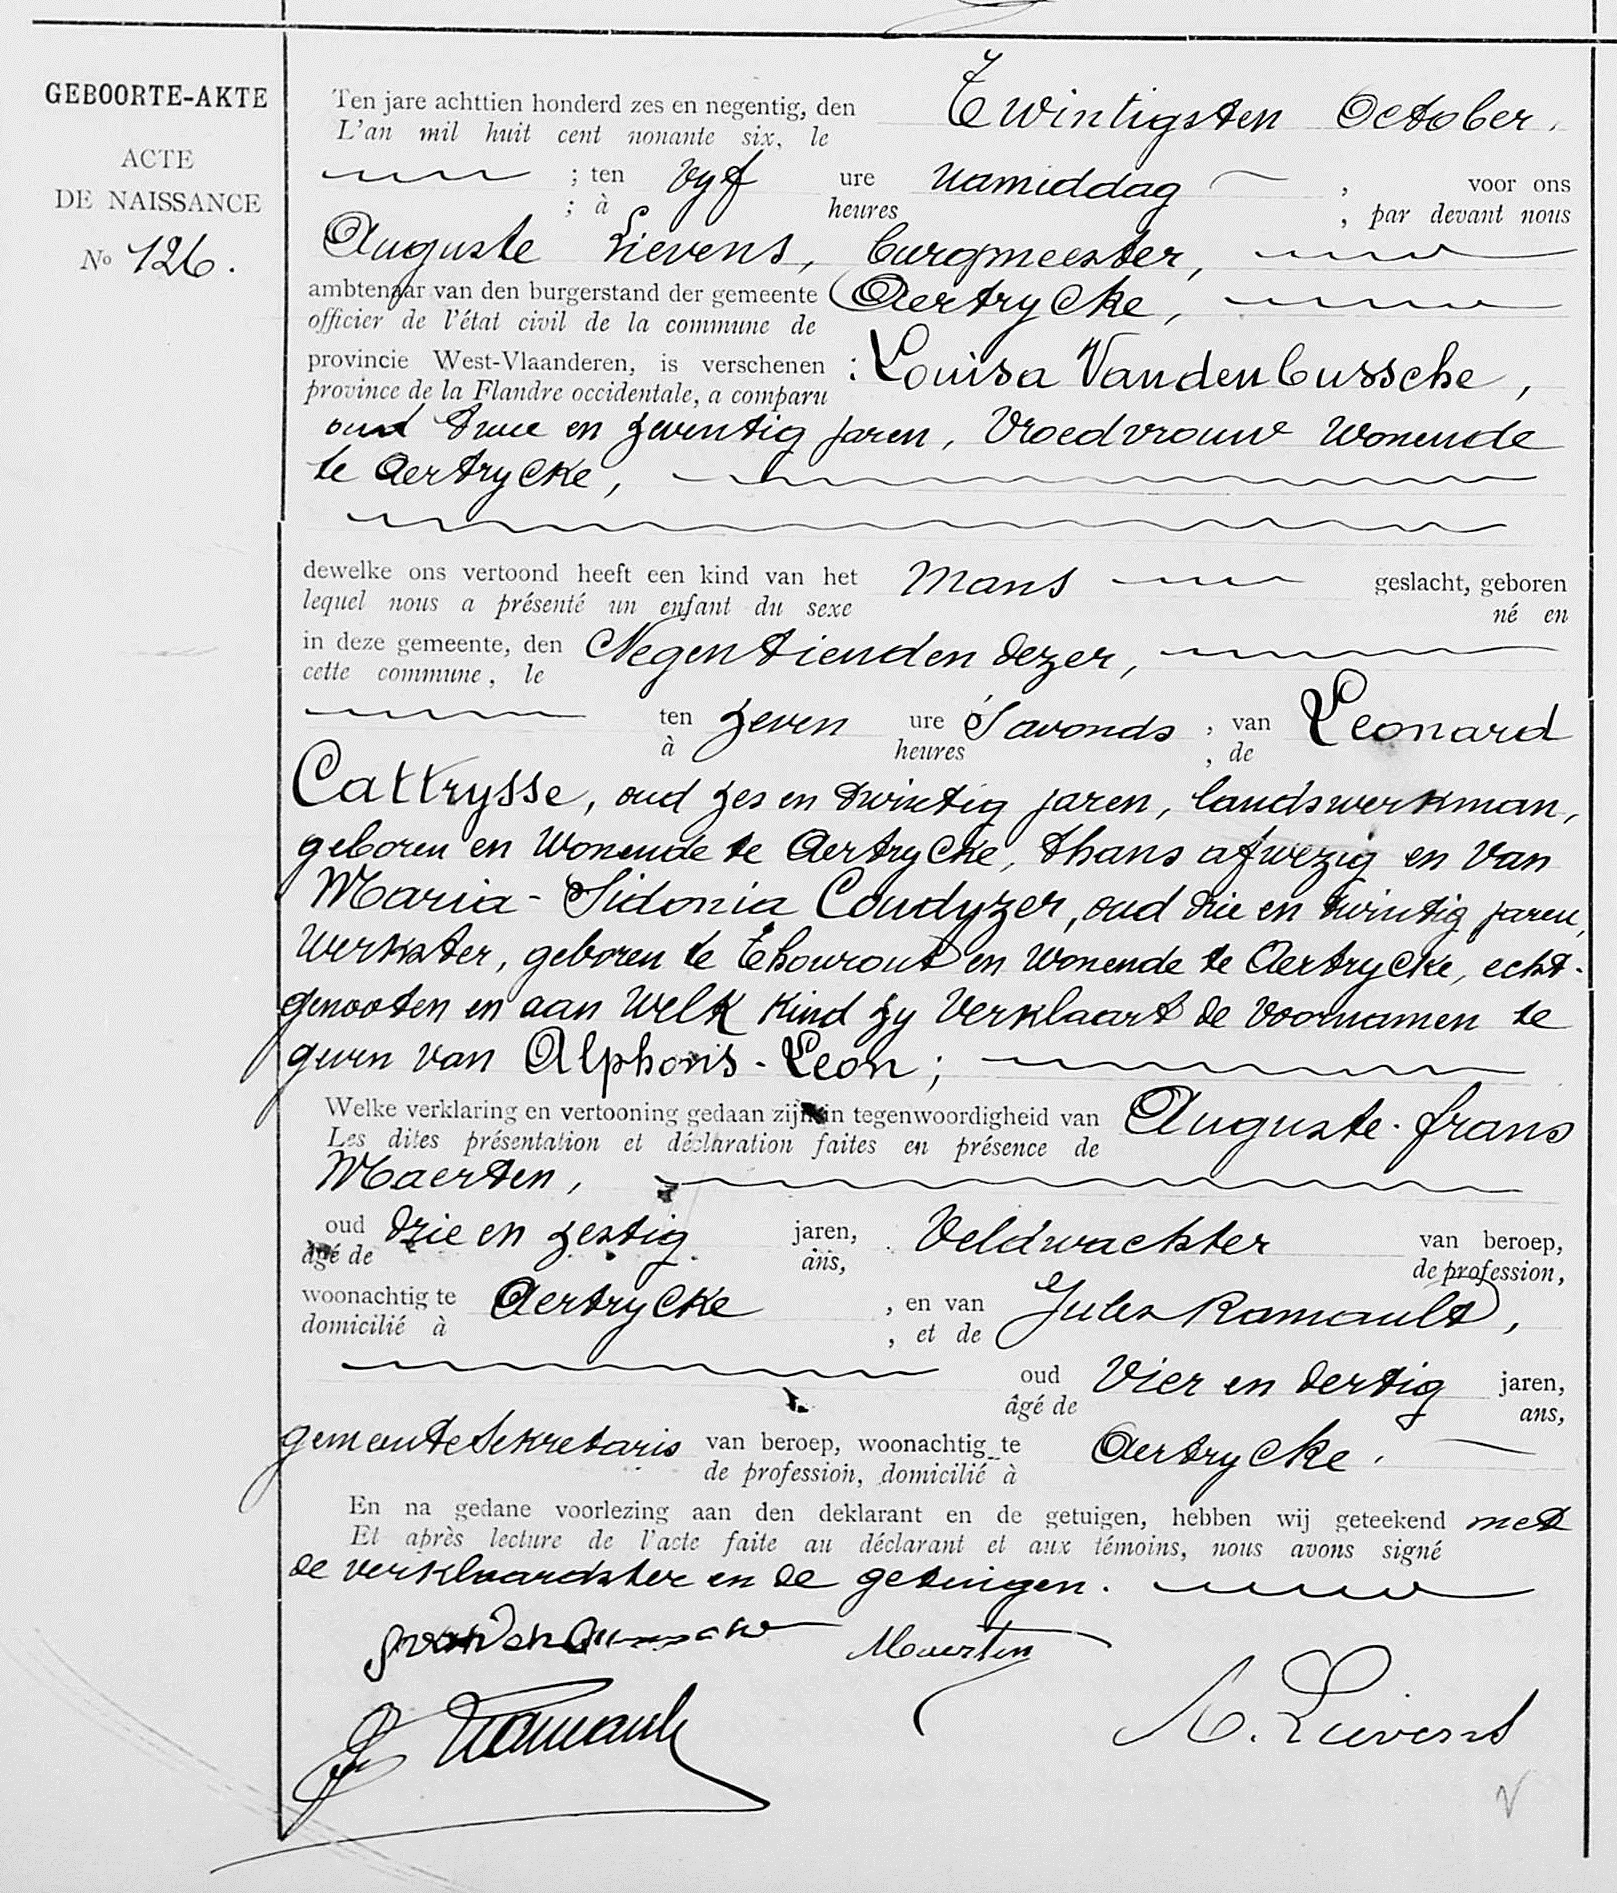 GEBOORTE-AKTE
ACTE
DE NAISSANCE
No 126.
Ten jare achttien honderd zes en negentig, den Twintigsten October.
L'an mil huit cent nonante six, le
; ten vyf ure namiddag , voor ons
; à heures , par devant nous
Auguste Lievens, burgmeester,
ambtenaar van den burgerstand der gemeente Aertrycke,
officier de l'état civil de la commune de
provincie West-Vlaanderen, is verschenen : Louisa Vandenbussche,
province de la Flandre occidentale, a comparu
oud twee en zeventig jaren, Vroedvrouw wonende
te Aertrycke,
dewelke ons vertoond heeft een kind van het mans geslacht, geboren
lequel nous a présenté un enfant du sexe né en
in deze gemeente, den Negentienden dezer,
cette commune, le
ten zeven ure 's avonds , van Leonard
à heures , de
Cattrysse, oud zes en twintig jaren, landswerkman,
geboren en wonende te Aertrycke, thans afwezig en van
Maria-Sidonia Coudyzer, oud drie en twintig jaren,
werkster, geboren te Thourout en wonende te Aertrycke, echt-
genooten en aan welk kind zy verklaart de voornamen te
geven van Alphons-Leon;
Welke verklaring en vertooning gedaan zijn in tegenwoordigheid van Auguste-frans
Les dites présentation et déclaration faites en présence de
Maerten,
oud drie en zestig jaren, Veldwachter van beroep,
âgé de ans, de profession,
woonachtig te Aertrycke , en van Jules Ramault,
domicilié à , et de
oud Vier en dertig jaren,
âgé de ans,
gemeentesekretaris van beroep, woonachtig te Aertrycke.
de profession, domicilié à
En na gedane voorlezing aan den deklarant en de getuigen, hebben wij geteekend met
Et après lecture de l'acte faite au déclarant et aux témoins, nous avons signé
de verklaardster en de getuigen.
Maerten
J. Ramault
A. Lievens